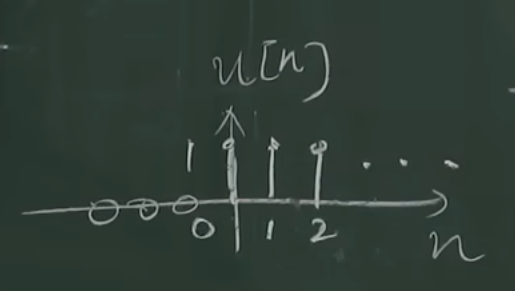 u[n]
1
0 1 2
n